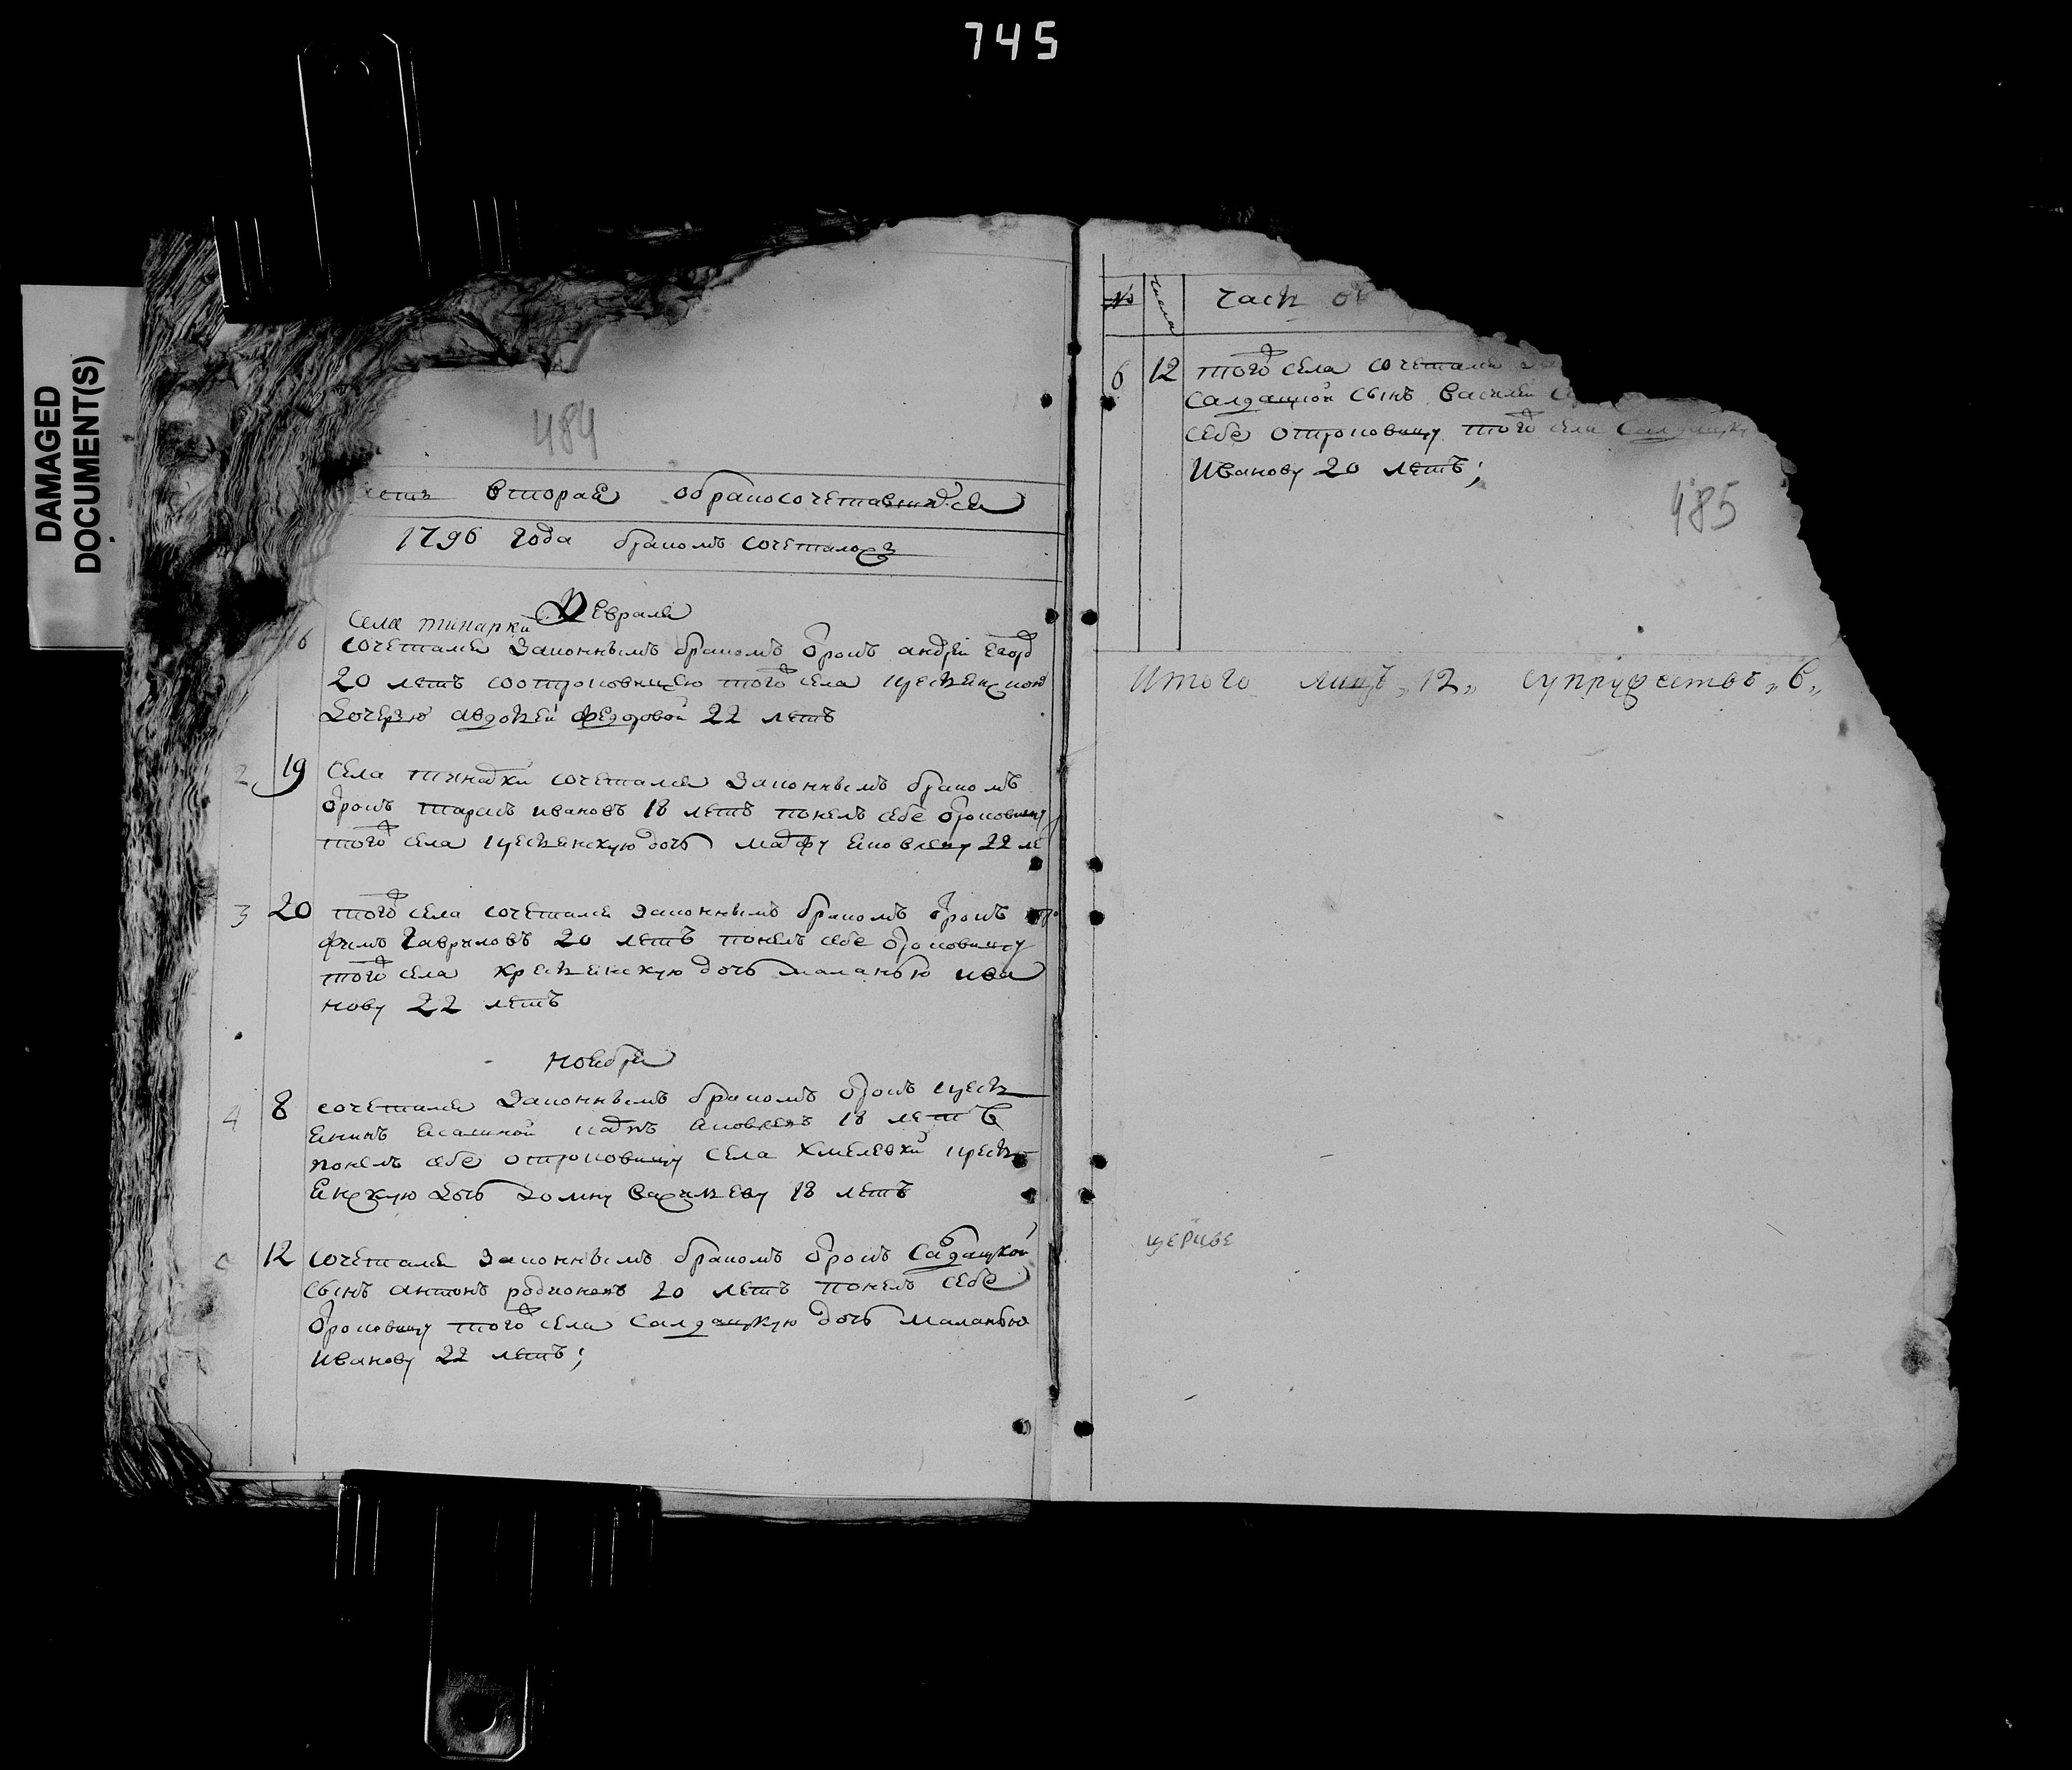 745
DAMAGED
DOCUMENT(S)
484
вторая обракосочетавшихся
1796 года браком сочеталось
Февраля
села тинарки
6 сочетался законнымъ бракомъ отрокъ андрей егоро
20 летъ соотроковицею того села крестьянскою
дочерью авдотьей федоровой 22 летъ
2 19 села сочетался законнымъ бракомъ
отрокъ тарасъ ивановъ 18 летъ понелъ себе отроковицу
того села крестьянскую дочь марфу 22 ле
3 20 того села сочетался законнымъ бракомъ отрокъ тро
фимъ гавриловъ 20 летъ понелъ себе отроковицу
того села крестьянскую дочь маланью ива
нову 22 летъ
ноября
4 8 сочетался законнымъ бракомъ отрокъ кресть
енинъ 18 летъ
понелъ себе отроковицу села хмелевки кресть
енскую дочь домну василеву 18 летъ
12 сочетался законнымъ бракомъ отрокъ салдацкой
сынъ антонъ родионовъ 20 летъ понелъ себе
отроковицу того села салдацкую дочь маланью
иванову 22 летъ;
№ числа часть
6 12 того села сочетался
салдацкой сынъ василей
себе отроковицу того села салдацку
иванову 20 летъ;
485
Итого лицъ „12„ супружествъ „6„
церкве